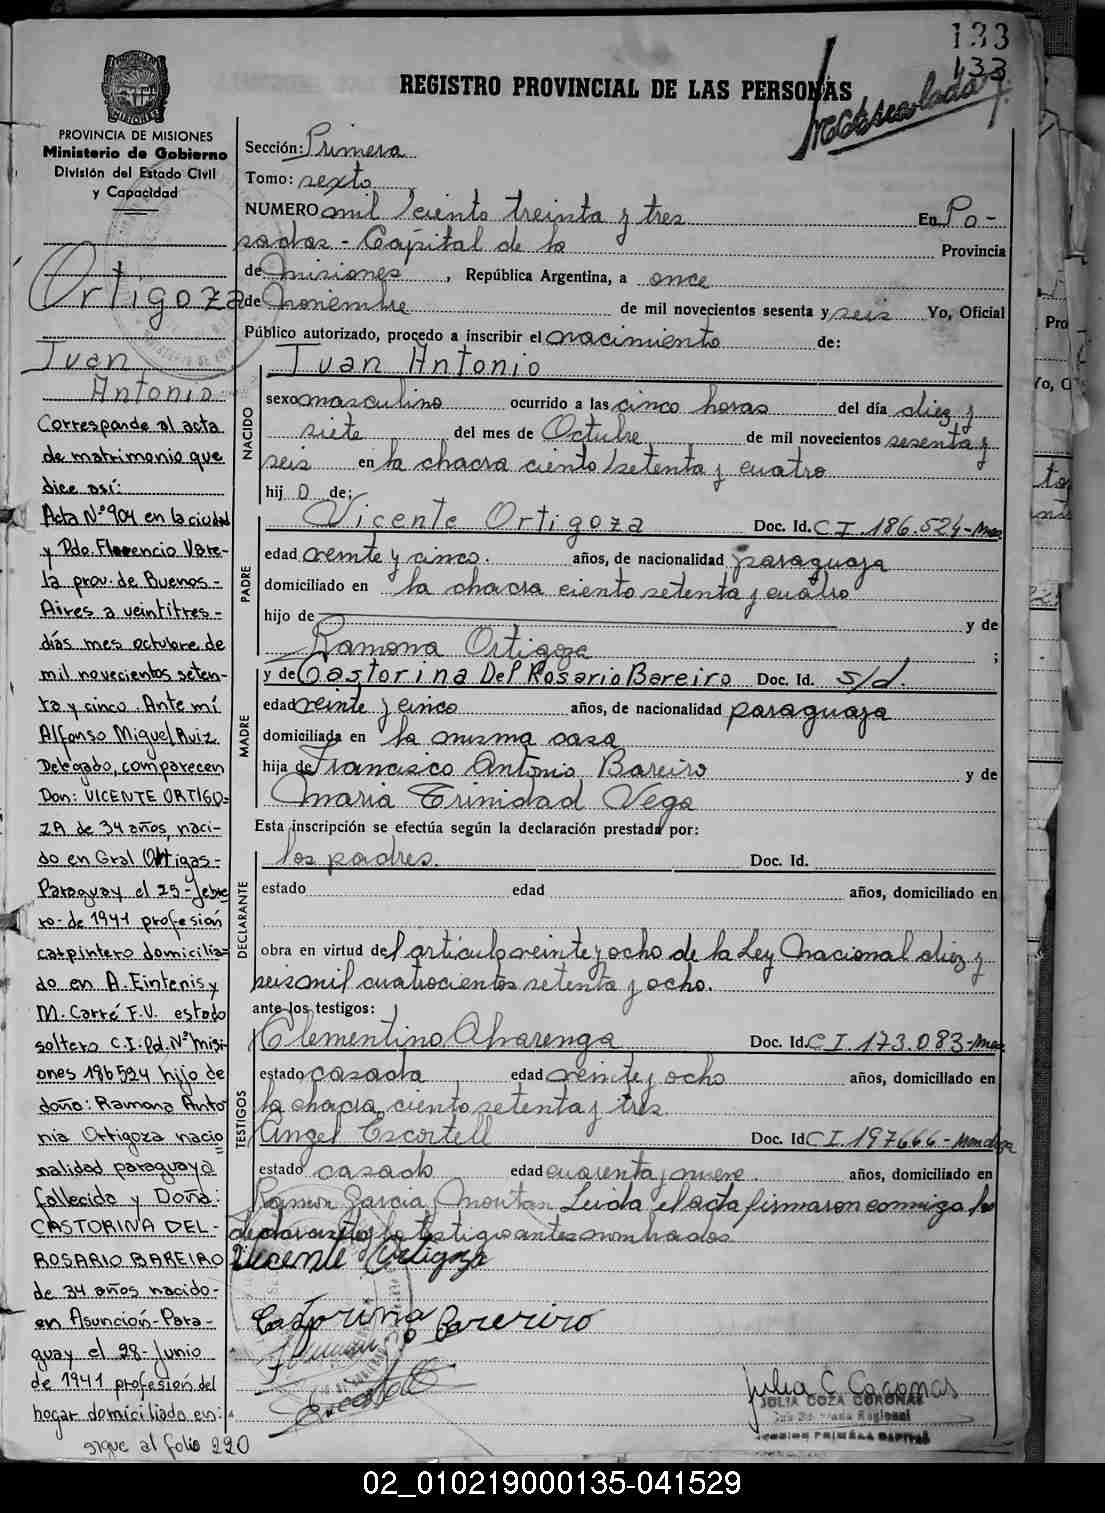 133
133
REGISTRO PROVINCIAL DE LAS PERSONAS
PROVINCIA DE MISIONES
Ministerio de Gobierno
División del Estado Civil
y Capacidad
Ortigoza
Juan
Antonio
Corresponde al acta
de matrimonio que
dice así:
Acta Nº 904 en la ciudad
y Pdo. Florencio Vare-
la prov. de Buenos-
Aires a veintitres-
días mes octubre de
mil novecientos seten-
ta y cinco. Ante mí
Alfonso Miguel Ruiz
Delegado, comparecen
Don: VICENTE ORTIGO=
ZA de 34 años, naci-
do en Gral Ortigas-
Paraguay el 25-febre
ro-de 1941 profesión
carpintero domicilia=
do en A. Eintenis y
M. Carré F.V. estado
soltero C.I. Pd. Nº Misi-
ones 186524 hijo de
doña: Ramona Anto
nia Ortigoza nacio
nalidad paraguaya
fallecida y Doña:
CASTORINA DEL-
ROSARIO BAREIRO
de 34 años nacido-
en Asunción-Para-
guay el 28-Junio
de 1941 profesión del
hogar domiciliado en:
sigue al folio 220
Sección: Primera
Tomo: sexto
NUMERO mil ciento treinta y tres En Po-
sadas - Capital de la Provincia
de Misiones, República Argentina, a once
de Noviembre de mil novecientos sesenta y seis Yo, Oficial
Público autorizado, procedo a inscribir el nacimiento de:
NACIDO
Juan Antonio
sexo masculino ocurrido a las cinco horas del día diez y
siete del mes de Octubre de mil novecientos sesenta y
seis en la chacra ciento setenta y cuatro
hij o de:
PADRE
Vicente Ortigoza Doc. Id. C I. 186.524-Mes
edad veinte y cinco. años, de nacionalidad paraguaya
domiciliado en la chacra ciento setenta y cuatro
hijo de y de
Ramona Ortigoza ;
MADRE
y de Castorina Del Rosario Bareiro Doc. Id. s/d.
edad veinte y cinco años, de nacionalidad paraguaya
domiciliada en la misma casa
hija de Francisco Antonio Bareiro y de
Maria Trinidad Vega
Esta inscripción se efectúa según la declaración prestada por:
DECLARANTE
los padres. Doc. Id.
estado edad años, domiciliado en
obra en virtud del artículo veinte y ocho de la Ley Nacional diez y
seis mil cuatrocientos setenta y ocho.
ante los testigos:
TESTIGOS
Clementino Alvarenga Doc. Id. C I. 173.083-Mes
estado casada edad veinte y ocho años, domiciliado en
la chacra ciento setenta y tres
Angel Escortell Doc. Id C I. 197666-Mendoza
estado casado edad cuarenta y nueve años, domiciliado en
Ramon Garcia Montan Leida el acta firmaron conmigo los
declarantes y los testigos antes nombrados
Vicente Ortigoza
Castorina Bareriro
Escortell
Julia C. Coronas
JULIA COZA CORONAS
SECCION PRIMERA CAPITAL
02_010219000135-041529